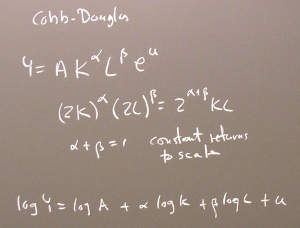 Cobb-Douglas
Y = A K^α L^β e^u
(2K)^α (2L)^β = 2^(α+β) KL
α + β = 1 constant returns
to scale
log Y = log A + α log K + β log L + u